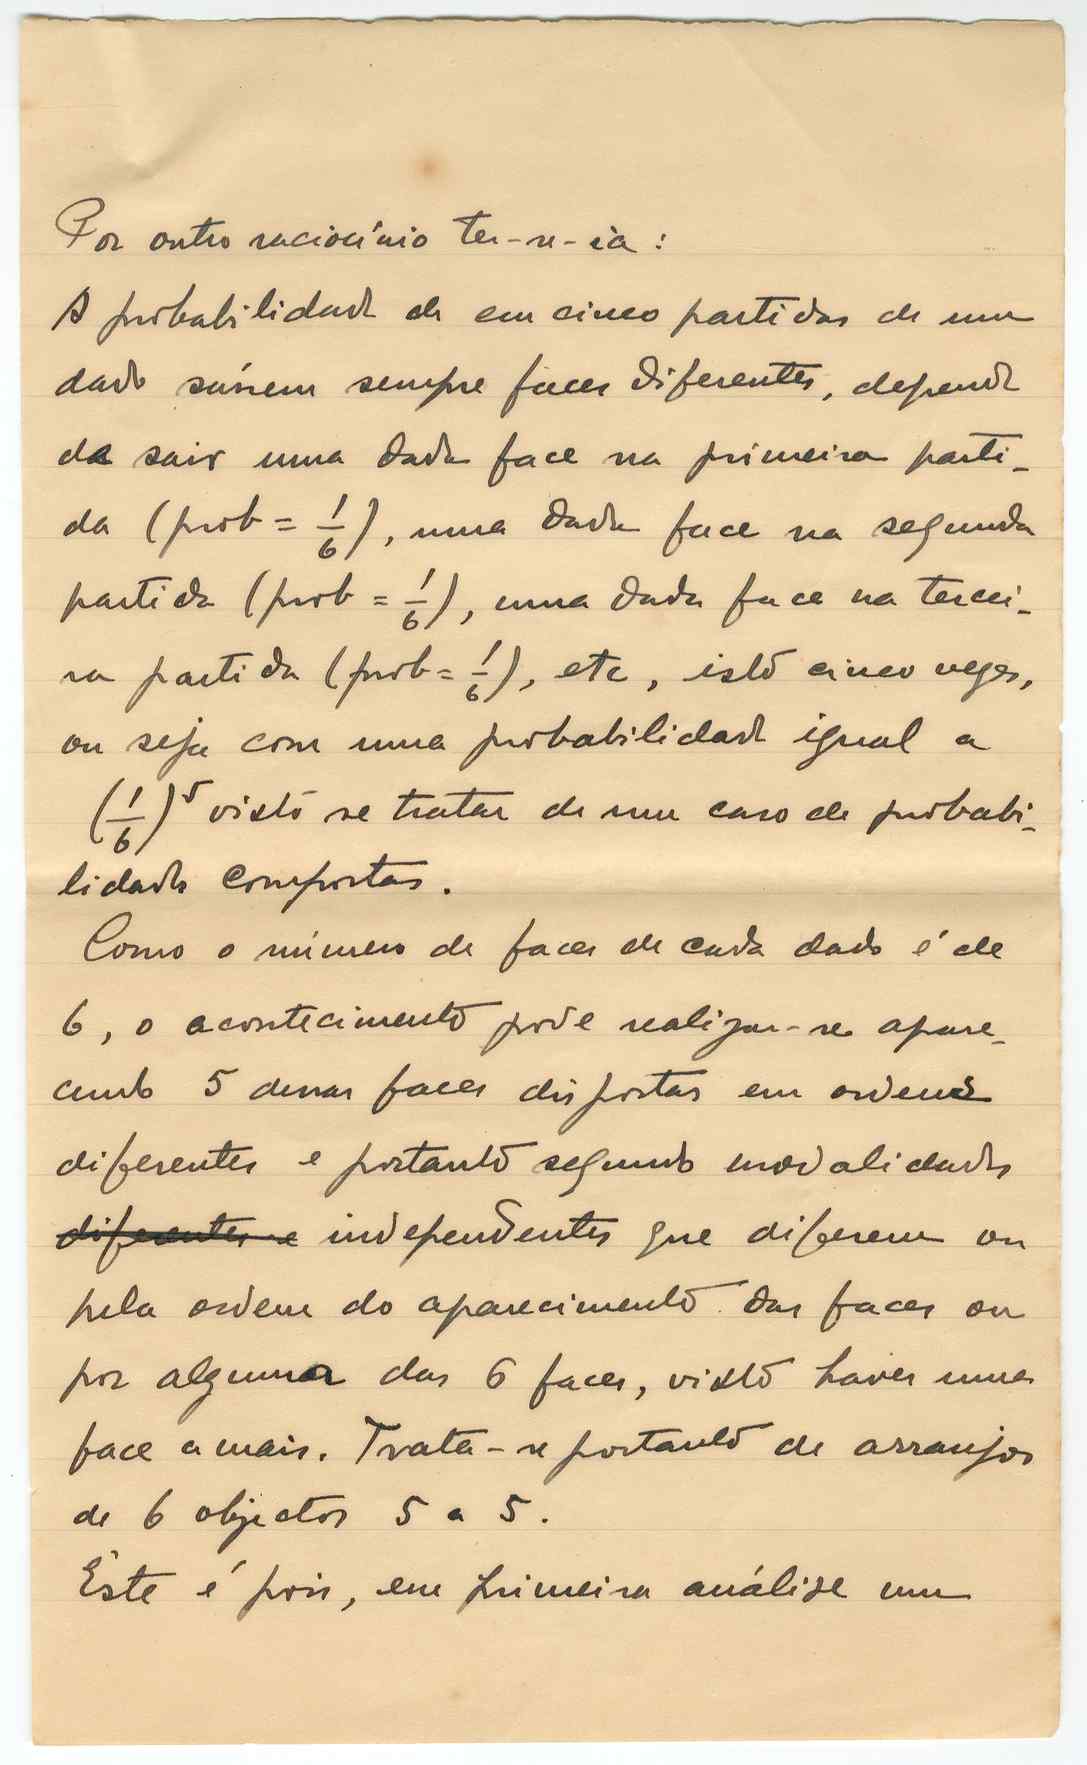 Por outro raciocínio ter-se-ia:
A probabilidade de em cinco partidas de um
dado saírem sempre faces diferentes, depende
da sair uma dada face na primeira parti-
da (prob = 1/6), uma dada face na segunda
partida (prob = 1/6), uma dada face na tercei-
ra partida (prob = 1/6), etc, isto cinco vezes,
ou seja com uma probabilidade igual a
(1/6)^5 visto se tratar de um caso de probabi-
lidades compostas.
Como o número de faces de cada dado é de
6, o acontecimento pode realizar-se apare-
cendo 5 dessas faces dispostas em ordens
diferentes e portanto segundo modalidades
diferentes e independentes que diferem ou
pela ordem do aparecimento das faces ou
por alguma das 6 faces, visto haver uma
face a mais. Trata-se portanto de arranjos
de 6 objectos 5 a 5.
Êste é pois, em primeira análise um